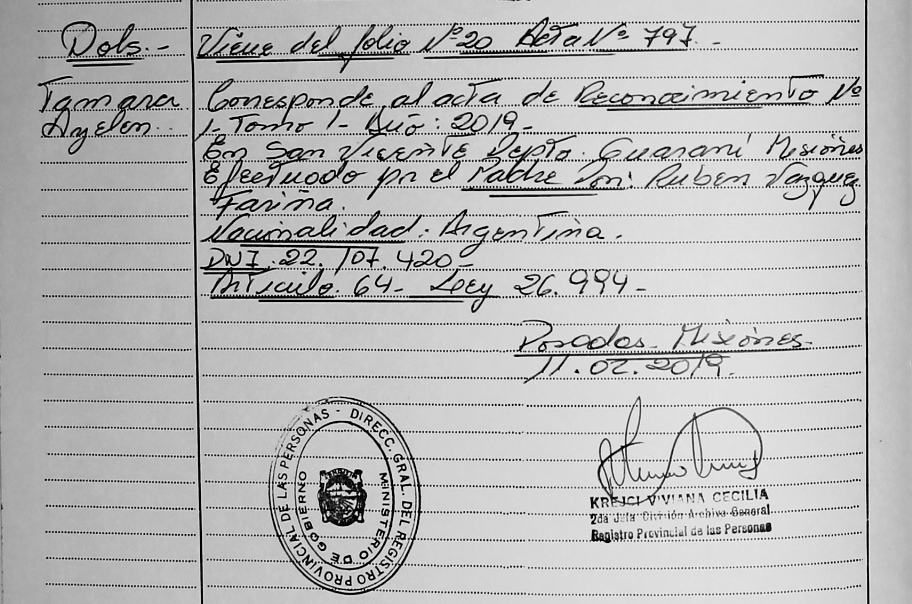 Dobs.-
Viene del folio Nº 20 Acta Nº 797.-
Tamara
Ayelen..
Corresponde al acta de Reconocimiento Nº
1- Tomo 1- Año: 2019-
En San Vicente Depto. Guaraní Misiones
Efectuado por el Padre Don: Ruben Vázquez
Fariña.
Nacionalidad: Argentina.
DNI. 22.107.420-
Artículo. 64- Ley 26.994-
Posadas- Misiones-
11.02.2019.
DIRECC. GRAL. DEL REGISTRO PROVINCIAL DE LAS PERSONAS -
MINISTERIO DE GOBIERNO
KREJCI VIVIANA CECILIA
2da Jefa División Archivo General
Registro Provincial de las Personas